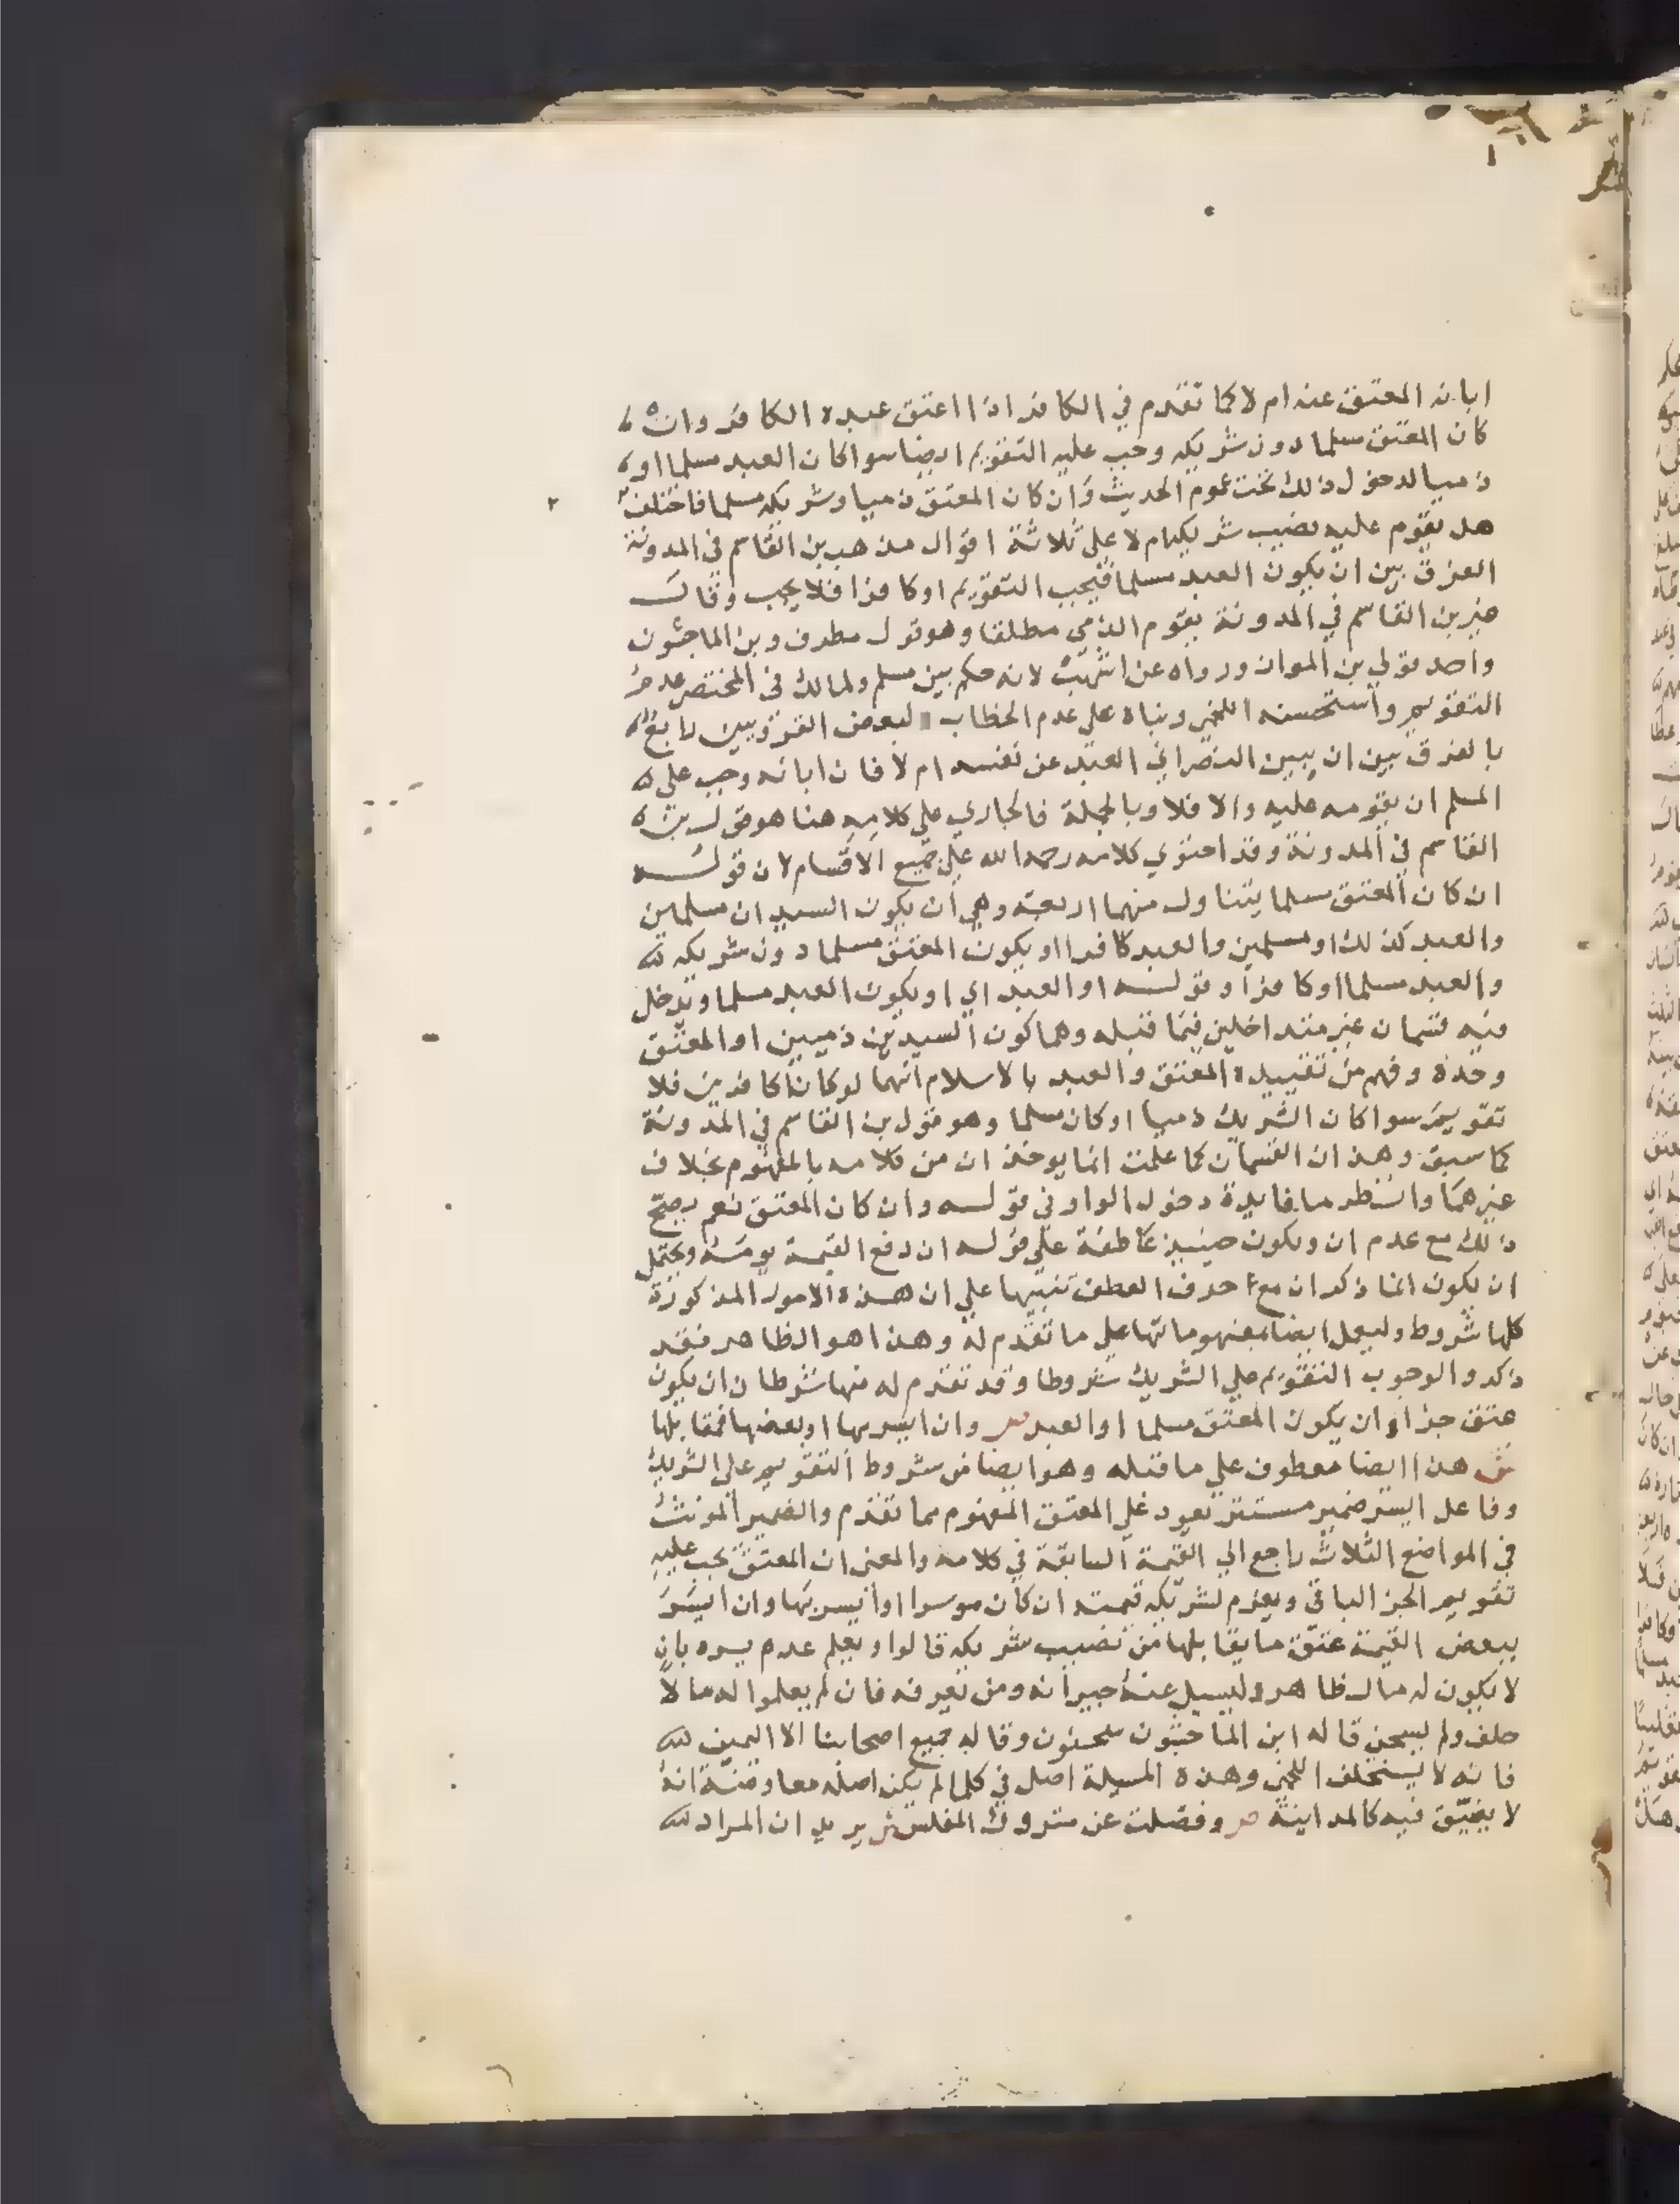 ابانه المعتق عنه ام لا كما تقدم في الكافر اذا اعتق عبده الكافر وان
كان المعتق مسلما دون شريكه وجب عليه التقويم ايضا سوا كان العبد مسلما او
ذميا لدخول ذلك تحت عموم الحديث وان كان المعتق ذميا وشريكه مسلما فاختلف
هل يقوم عليه نصيب شريكه ام لا على ثلاثة اقوال مذهب بن القاسم في المدونة
الفرق بين ان يكون العبد مسلما فيجب التقويم او كافرا فلا يجب وقال
غير بن القاسم في المدونة يقوم الذمي مطلقا وهو قول مطرف وبن الماجشون
واحد قولي بن المواز ورواه عن اشهب لانه حكم بين مسلم ولمالك في المختصر عدم
التقويم واستحسنه اللخمي وبناه على عدم الخطاب لبعض القرويين رابع
بالفرق بين ان يبين النصراني العبد عن نفسه ام لا فان ابانه وجب على
المسلم ان يقومه عليه والا فلا وبالجملة فالجاري على كلامه هنا هو قول بن
القاسم في المدونة وقد احتوي كلامه رحمه الله على جميع الاقسام لان قوله
ان كان المعتق مسلما يتناول منهما اربعة وهي ان يكون السيدان مسلمين
والعبد كذلك او مسلمين والعبد كافرا او يكون المعتق مسلما دون شريكه
والعبد مسلما او كافرا وقوله او العبد اي او يكون العبد مسلما ويدخل
فيه قسمان غير متداخلين فيما قبله وهما كون السيدين ذميين او المعتق
وحده وفهم من تقييده المعتق والعبد بالاسلام انهما لو كانا كافرين فلا
تقويم سوا كان الشريك ذميا او كان مسلما وهو قول بن القاسم في المدونة
كما سبق وهذان القسمان كما علمت انما يوخذان من كلامه بالمفهوم بخلاف
غيرهما وانظر ما فايدة دخول الواو في قوله وان كان المعتق نعم يصح
ذلك مع عدم ان ويكون حينيذ عاطفة على قوله ان دفع القيمة يومه ويحتمل
ان يكون انما ذكر ان مع حرف العطف تنبيها على ان هذه الامور المذكورة
كلها شروط وليعمل ايضا بمفهوماتها على ما تقدم له وهذا هو الظاهر فقد
ذكروا لوجوب التقويم على الشريك شروطا وقد تقدم له منها شرطان ان يكون
عتق جزا وان يكون المعتق مسلما او العبد ص وان ايسر بها او بعضها فمقابلها
ش هذا ايضا معطوف على ما قبله وهو ايضا من شروط التقويم على الشريك
وفاعل ايسر ضمير مستتر يعود على المعتق المفهوم مما تقدم والضمير المونث
في المواضع الثلاث راجع الي القيمة السابقة في كلامه والمعنى ان المعتق يجب عليه
تقويم الجز الباقي ويغرم لشريكه قيمته ان كان موسرا او ايسر بها وان ايسر
ببعض القيمة عتق ما يقابلها من نصيب شريكه قالوا ويعلم عدم يسره بان
لا يكون له مال ظاهر وليسيل عنه جيرانه ومن يعرفه فان لم يعلموا له مالا
حلف ولم يسجن قاله ابن الماجشون سحنون وقاله جميع اصحابنا الا اليمين
فانه لا يستحلف اللخمي وهذه المسيلة اصل في كلما لم يكن اصله معاوضة انه
لا يضيق فيه كالمداينة ص وفضلت عن متروك المفلس ش يريد ان المراد